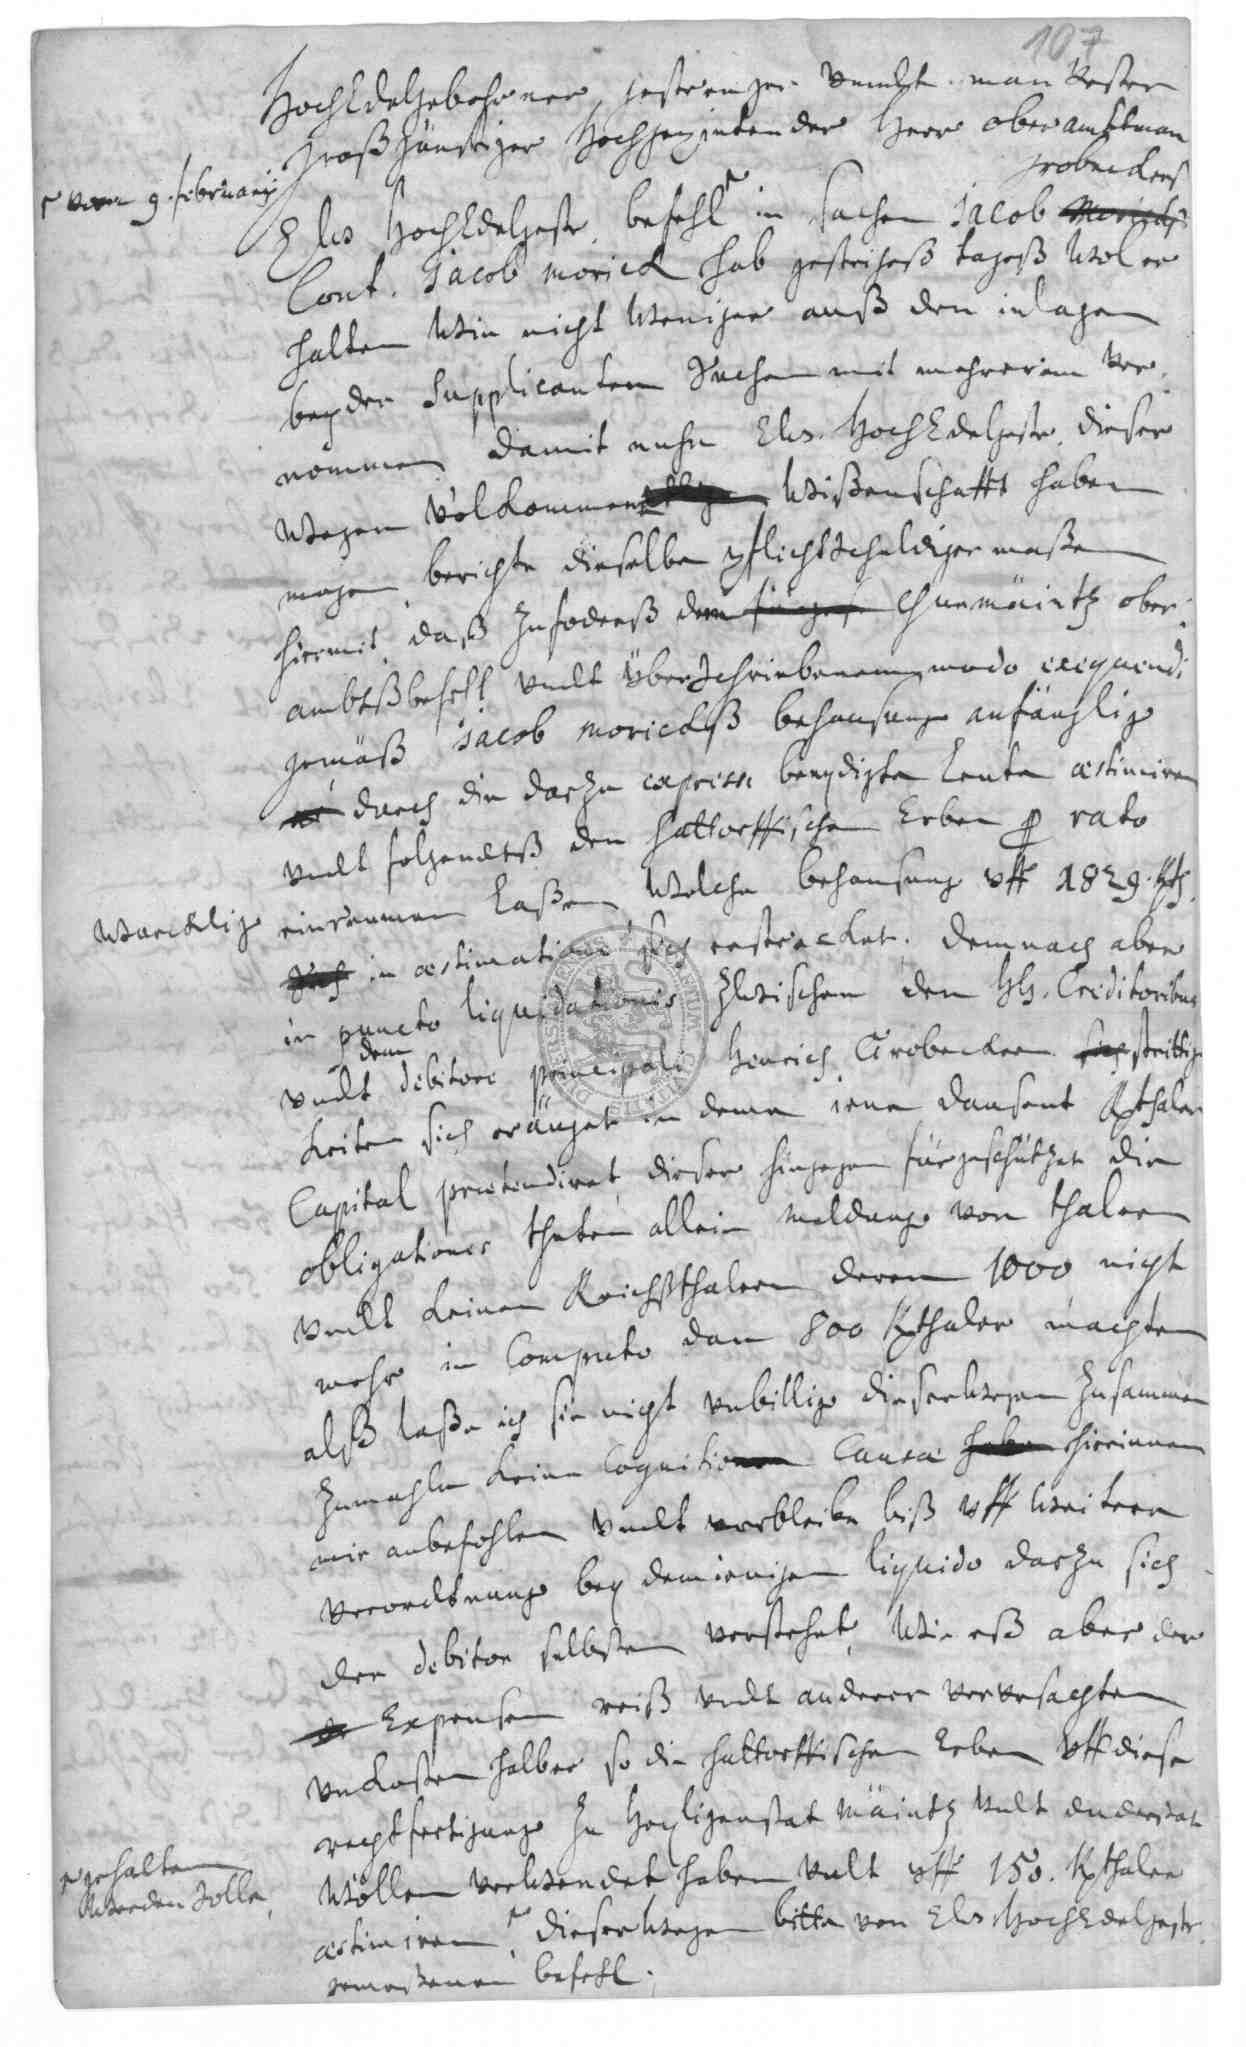 107
HochEdelgebohrner gestrenger vundt man Vester
großgünstiger Hochgepietender Herr oberambtman
grobeckers
vom 9. februarij
Ew HochEdelgestr. befehl in sachen Jacob Moricks
Cont. Jacob Morick hab gestrigeß tageß wol er
halten wie nicht weniger auß den inlagen
beyder Supplicanten sachen mit mehrerem ver
nommen damit nuhn Ew. HochEdelgestr. dieser
wegen volkommene wißenschafft haben
mogen berichte dieselbe pflichtschuldiger maßen
hiermit, daß zufoderß dem Churmäintz ober
ambtßbefehl vndt überschriebenem modo exequendi
gemäß Jacob Morickß behausung anfänglig
durch die darzu expresse beeydigte Leute æstimiren
vndt folgendtß den hattorffischen Erben pro rato
würcklig einreumen laßen, welche behausung vff 1829. Rth.
in æstimatione sich erstrecket, demnach aber
in puncto liquidationis zwischen den HH. Creditoribus
dem
vndt debitore principali Henrich Grobecker strittig
keiten sich eräuget in deme iene dausent Rthaler
Capital prætendiret, dieser hingegen fürgeschützet die
obligationes theten allein meldung von thalern
vndt keinen Reichßthalern deren 1000 nicht
mehr in Computo dan 800 Rthaler machten
alß laße ich sie nicht vnbillig dieserwegen zusammen
zumahlen keine Cognitio Causæ hierinnen
mir anbefohlen vndt verbleibe biß vff weitere
verordtnung bey demienigen liquido darzu sich
der debitor selbsten verstehet, wie eß aber der
Expensen reiß vndt anderer vervrsachten
vnkosten halber so die hattorffischen Erben vff diese
rechtfertigung zu Heyligenstat Mäintz vndt duderstat
wöllen verwendet haben vndt vff 150. Rthaler
gehalten
werden solle,
æstimiren, dieserwegen bitte von Ew HochEdelgestr.
gemeßenen befehl.